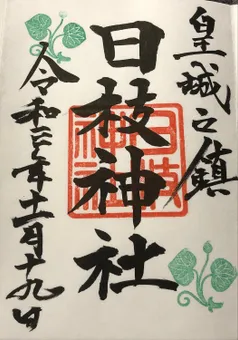 皇城之鎮
日枝神社
日枝神社
令和二年十一月十九日